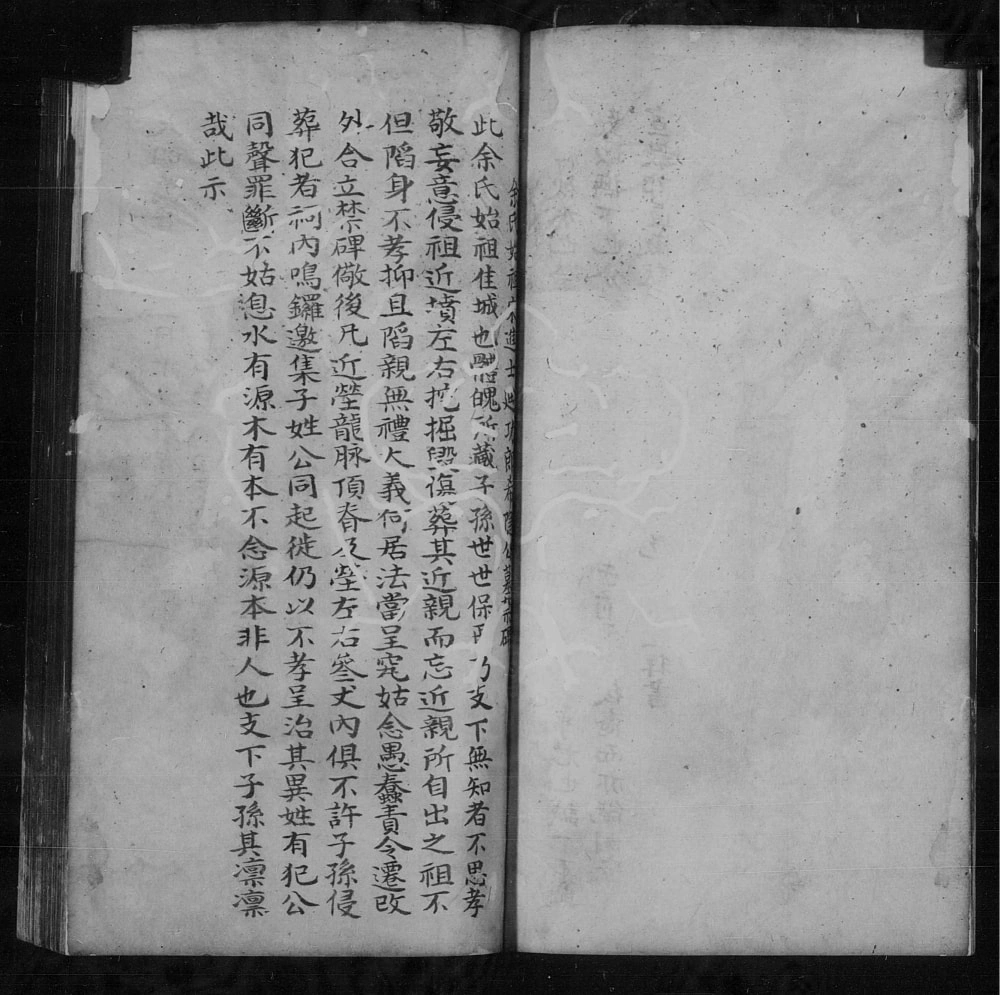 余氏始祖宋進士 公墓禁碑
此余氏始祖佳城也體魄所藏子孫世世保 乃支下無知者不思孝
敬妄意侵祖近墳左右挖掘毀 葬其近親而忘近親所自出之祖不
但陷身不孝抑且陷親無禮大義何居法當呈究姑念愚蠢責令遷改
外合立禁碑儆後凡近塋龍脉頂脊及塋左右叄丈內俱不許子孫侵
葬犯者祠內鳴鑼邀集子姓公同起徙仍以不孝呈治其異姓有犯公
同聲罪斷不姑息水有源木有本不念源本非人也支下子孫其凛凛
哉此示